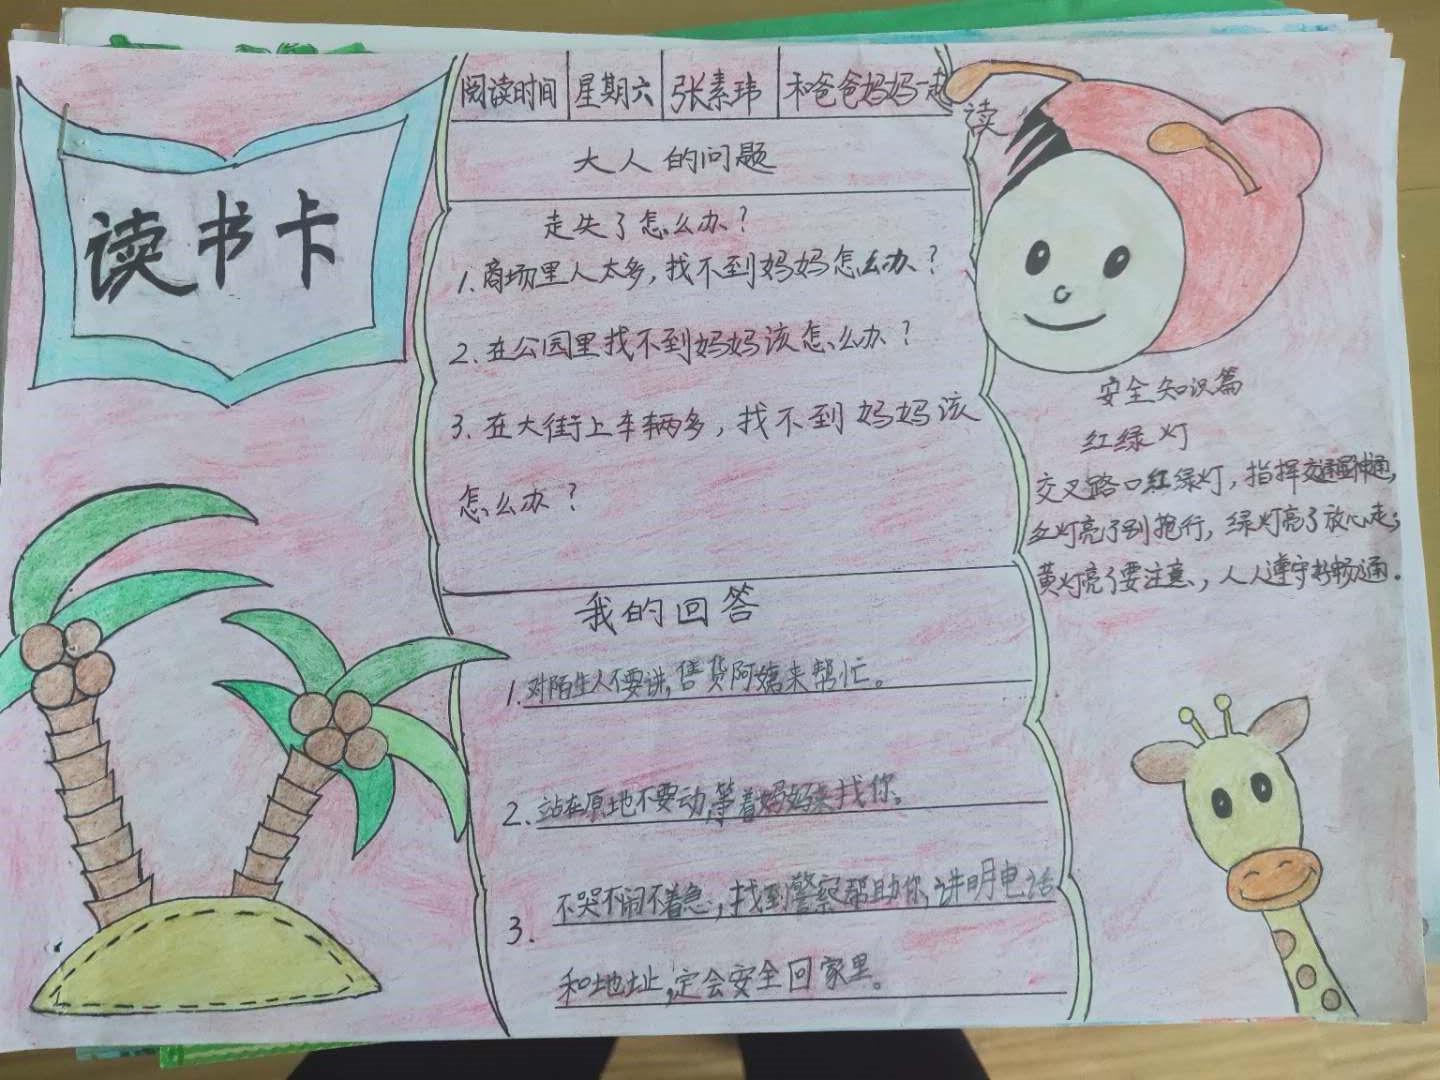 读书卡
阅读时间 星期六 张素玮 和爸爸妈妈一起读
大人的问题
走失了怎么办？
1.商场里人太多,找不到妈妈怎么办？
2.在公园里找不到妈妈该怎么办？
3.在大街上车辆多,找不到妈妈该
怎么办？
我的回答
1.对陌生人不要讲,售货阿姨来帮忙。
2.站在原地不要动,等着妈妈来找你。
3.不哭不闹不着急,找到警察帮助你,讲明电话
和地址,定会安全回家里。
安全知识篇
红绿灯
交叉路口红绿灯,指挥交通
红灯亮了别抢行,绿灯亮了放心走;
黄灯亮了要注意,人人遵守才畅通.